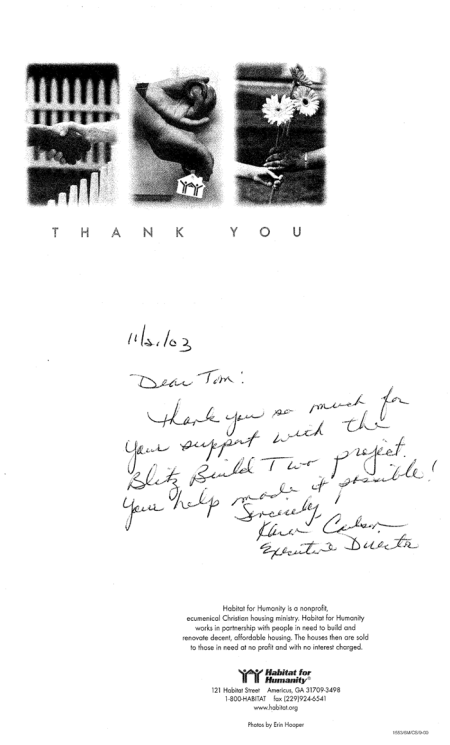 THANK YOU
Dear Tom:
Thank you so much for
your support with the
Blitz Build Two project.
Your help made it possible!
Sincerely,
Executive Director
Habitat for Humanity is a nonprofit,
ecumenical Christian housing ministry. Habitat for Humanity
works in partnership with people in need to build and
renovate decent, affordable housing. The houses then are sold
to those in need at no profit and with no interest charged.
Habitat for
Humanity®
121 Habitat Street Americus, GA 31709-3498
1-800-HABITAT fax (229)924-6541
www.habitat.org
Photos by Erin Hooper